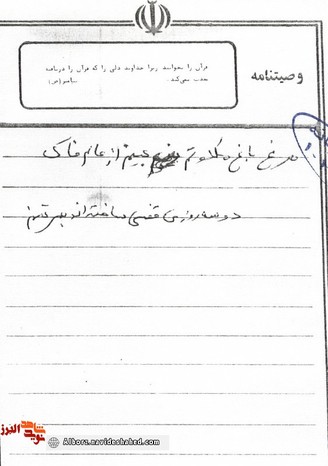 وصیتنامه
قرآن را بخوانید زیرا خداوند دلی را که قرآن را دریافته
عذب نمی‌کند.
پیامبر (ص)
مرغ باغ ملکوتم نیم از عالم خاک
دو سه روزی قفسی ساخته‌اند بدنم
شاهد
نوید
البرز
Alborz.navideshahed.com